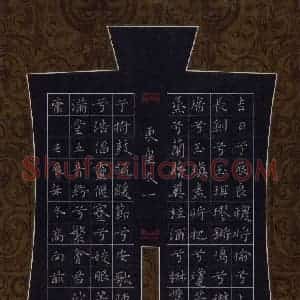 吉日兮辰良穆將愉兮
長劍兮玉珥璆鏘鳴兮
席兮玉瑱盍將把兮瓊
蒸兮蘭藉奠桂酒兮椒
東皇太一
兮拊鼓疏緩節兮安歌
兮浩倡靈偃蹇兮姣服
滿堂五音紛兮繁
Shufaziliao.com